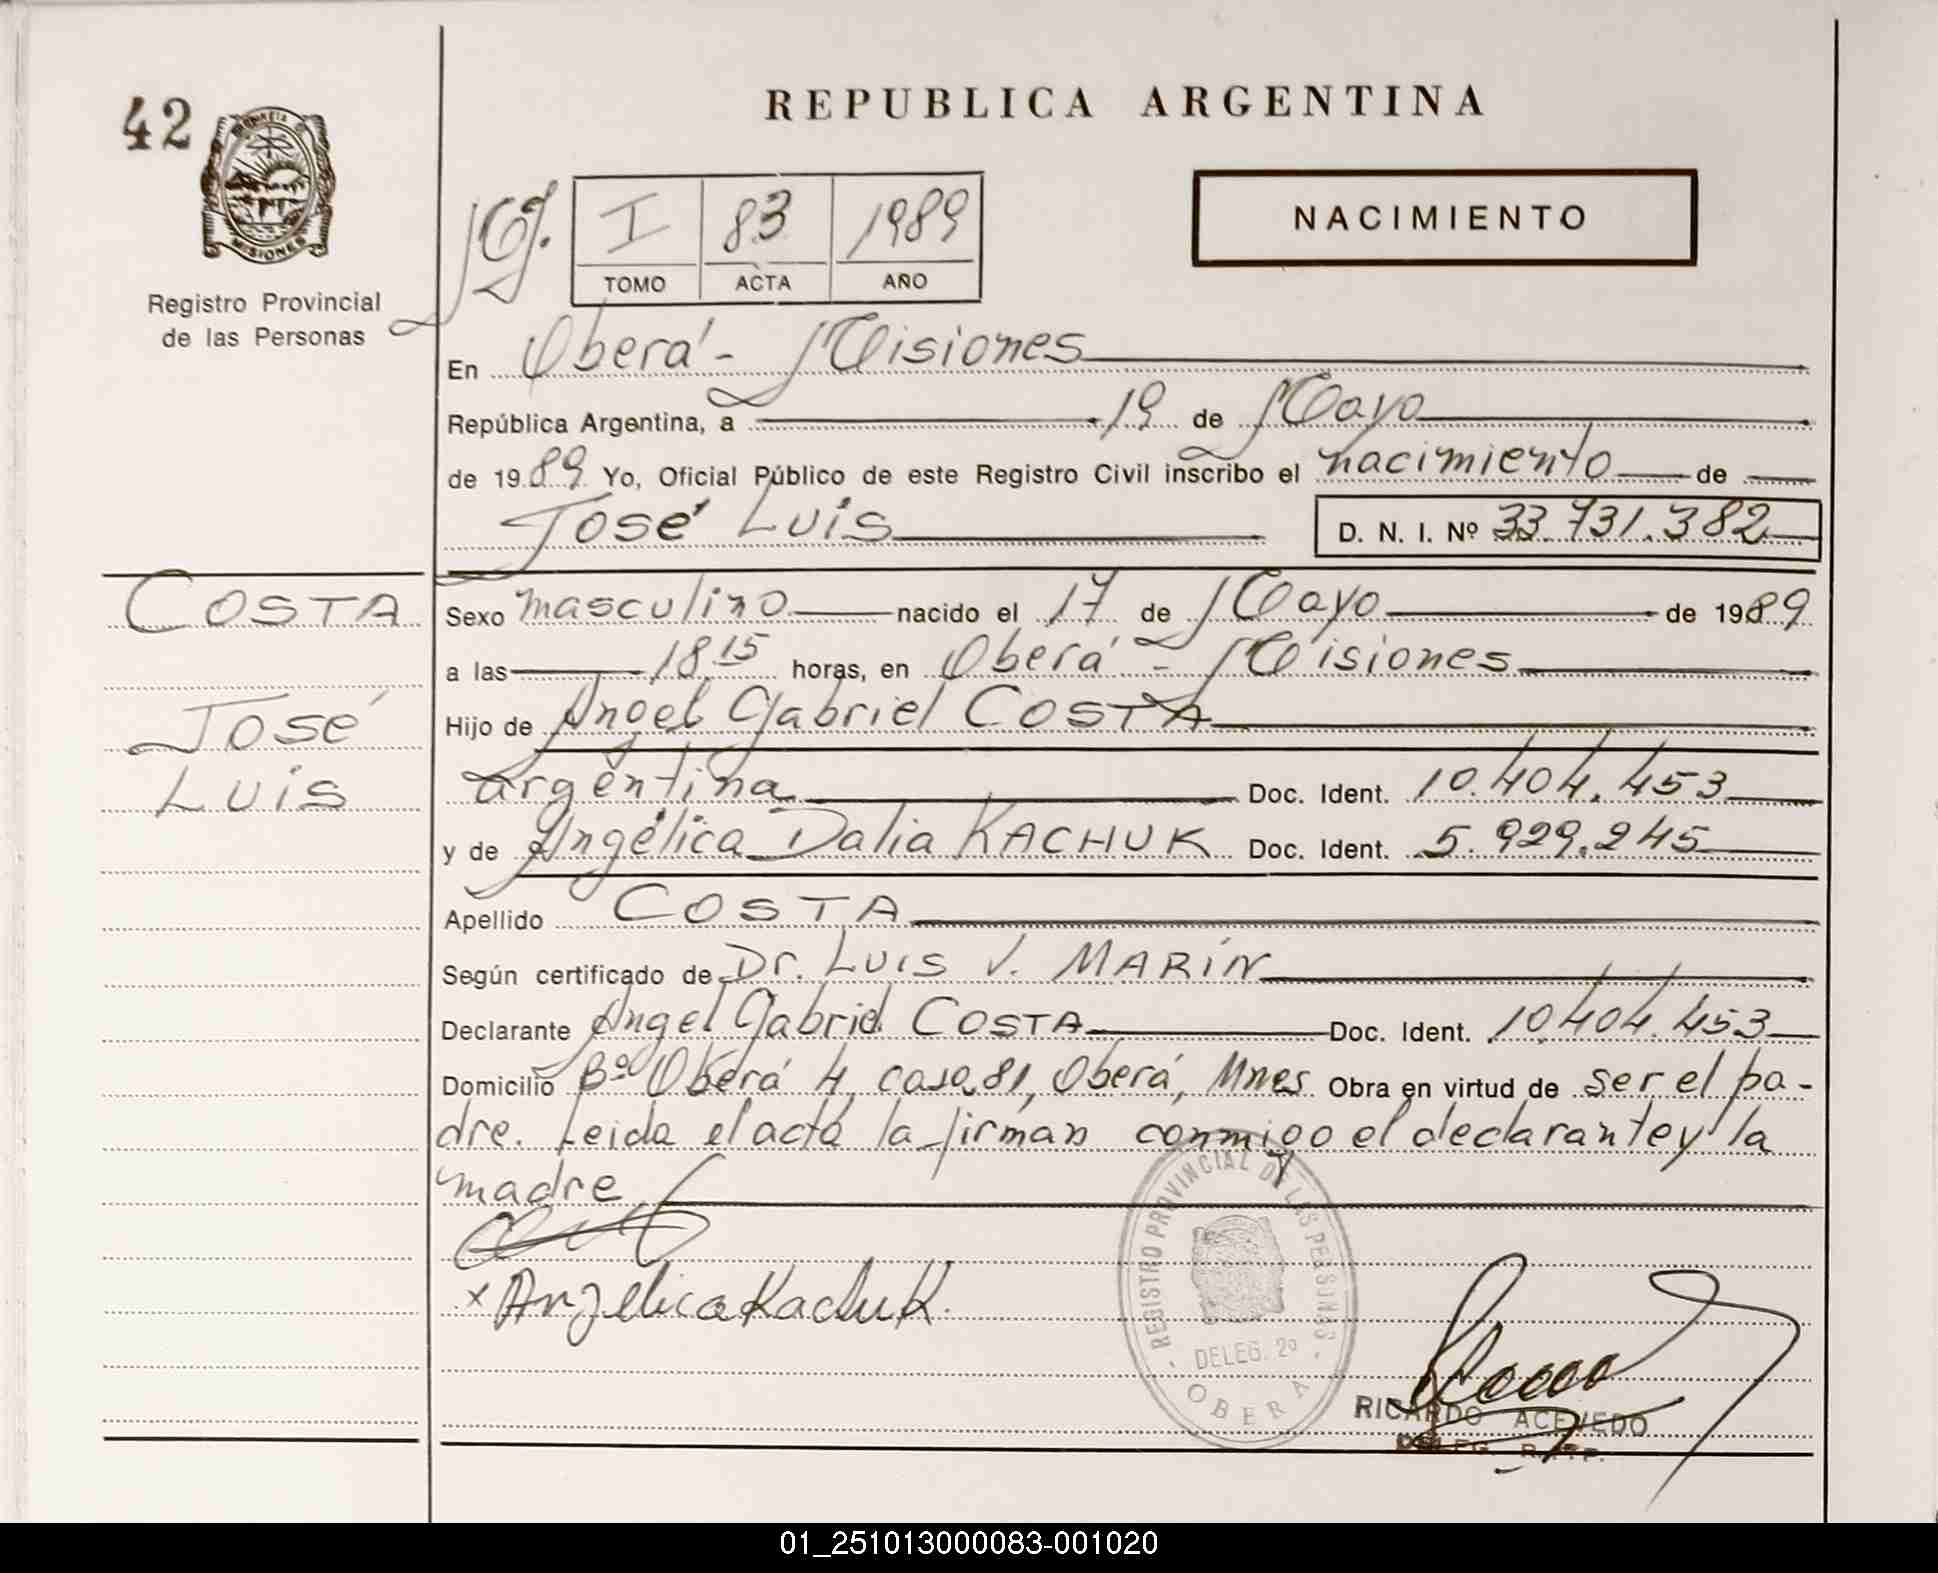 42
REPUBLICA ARGENTINA
MISIONES
Registro Provincial
de las Personas
I 83 1989
TOMO ACTA AÑO
NACIMIENTO
En Oberá - Misiones
República Argentina, a 19 de Mayo
de 1989 Yo, Oficial Público de este Registro Civil inscribo el nacimiento de
José Luis D. N. I. Nº 33.731.382
COSTA
José
Luis
Sexo masculino nacido el 17 de Mayo de 1989
a las 18.15 horas, en Oberá - Misiones
Hijo de Angel Gabriel COSTA
argentina Doc. Ident. 10.404.453
y de Angélica Dalia KACHUK Doc. Ident. 5.929.245
Apellido COSTA
Según certificado de Dr. Luis V. MARÍN
Declarante Angel Gabriel COSTA Doc. Ident. 10.404.453
Domicilio Bº Oberá 4, casa 81, Oberá, Mnes Obra en virtud de ser el pa-
dre. Leida el acta la firman conmigo el declarante y la
madre
x Angelica Kachuk.
REGISTRO PROVINCIAL DE LAS PERSONAS
DELEG. 2º
OBERA
RICARDO ACEVEDO
DELEG. R.P.P.
01_251013000083-001020